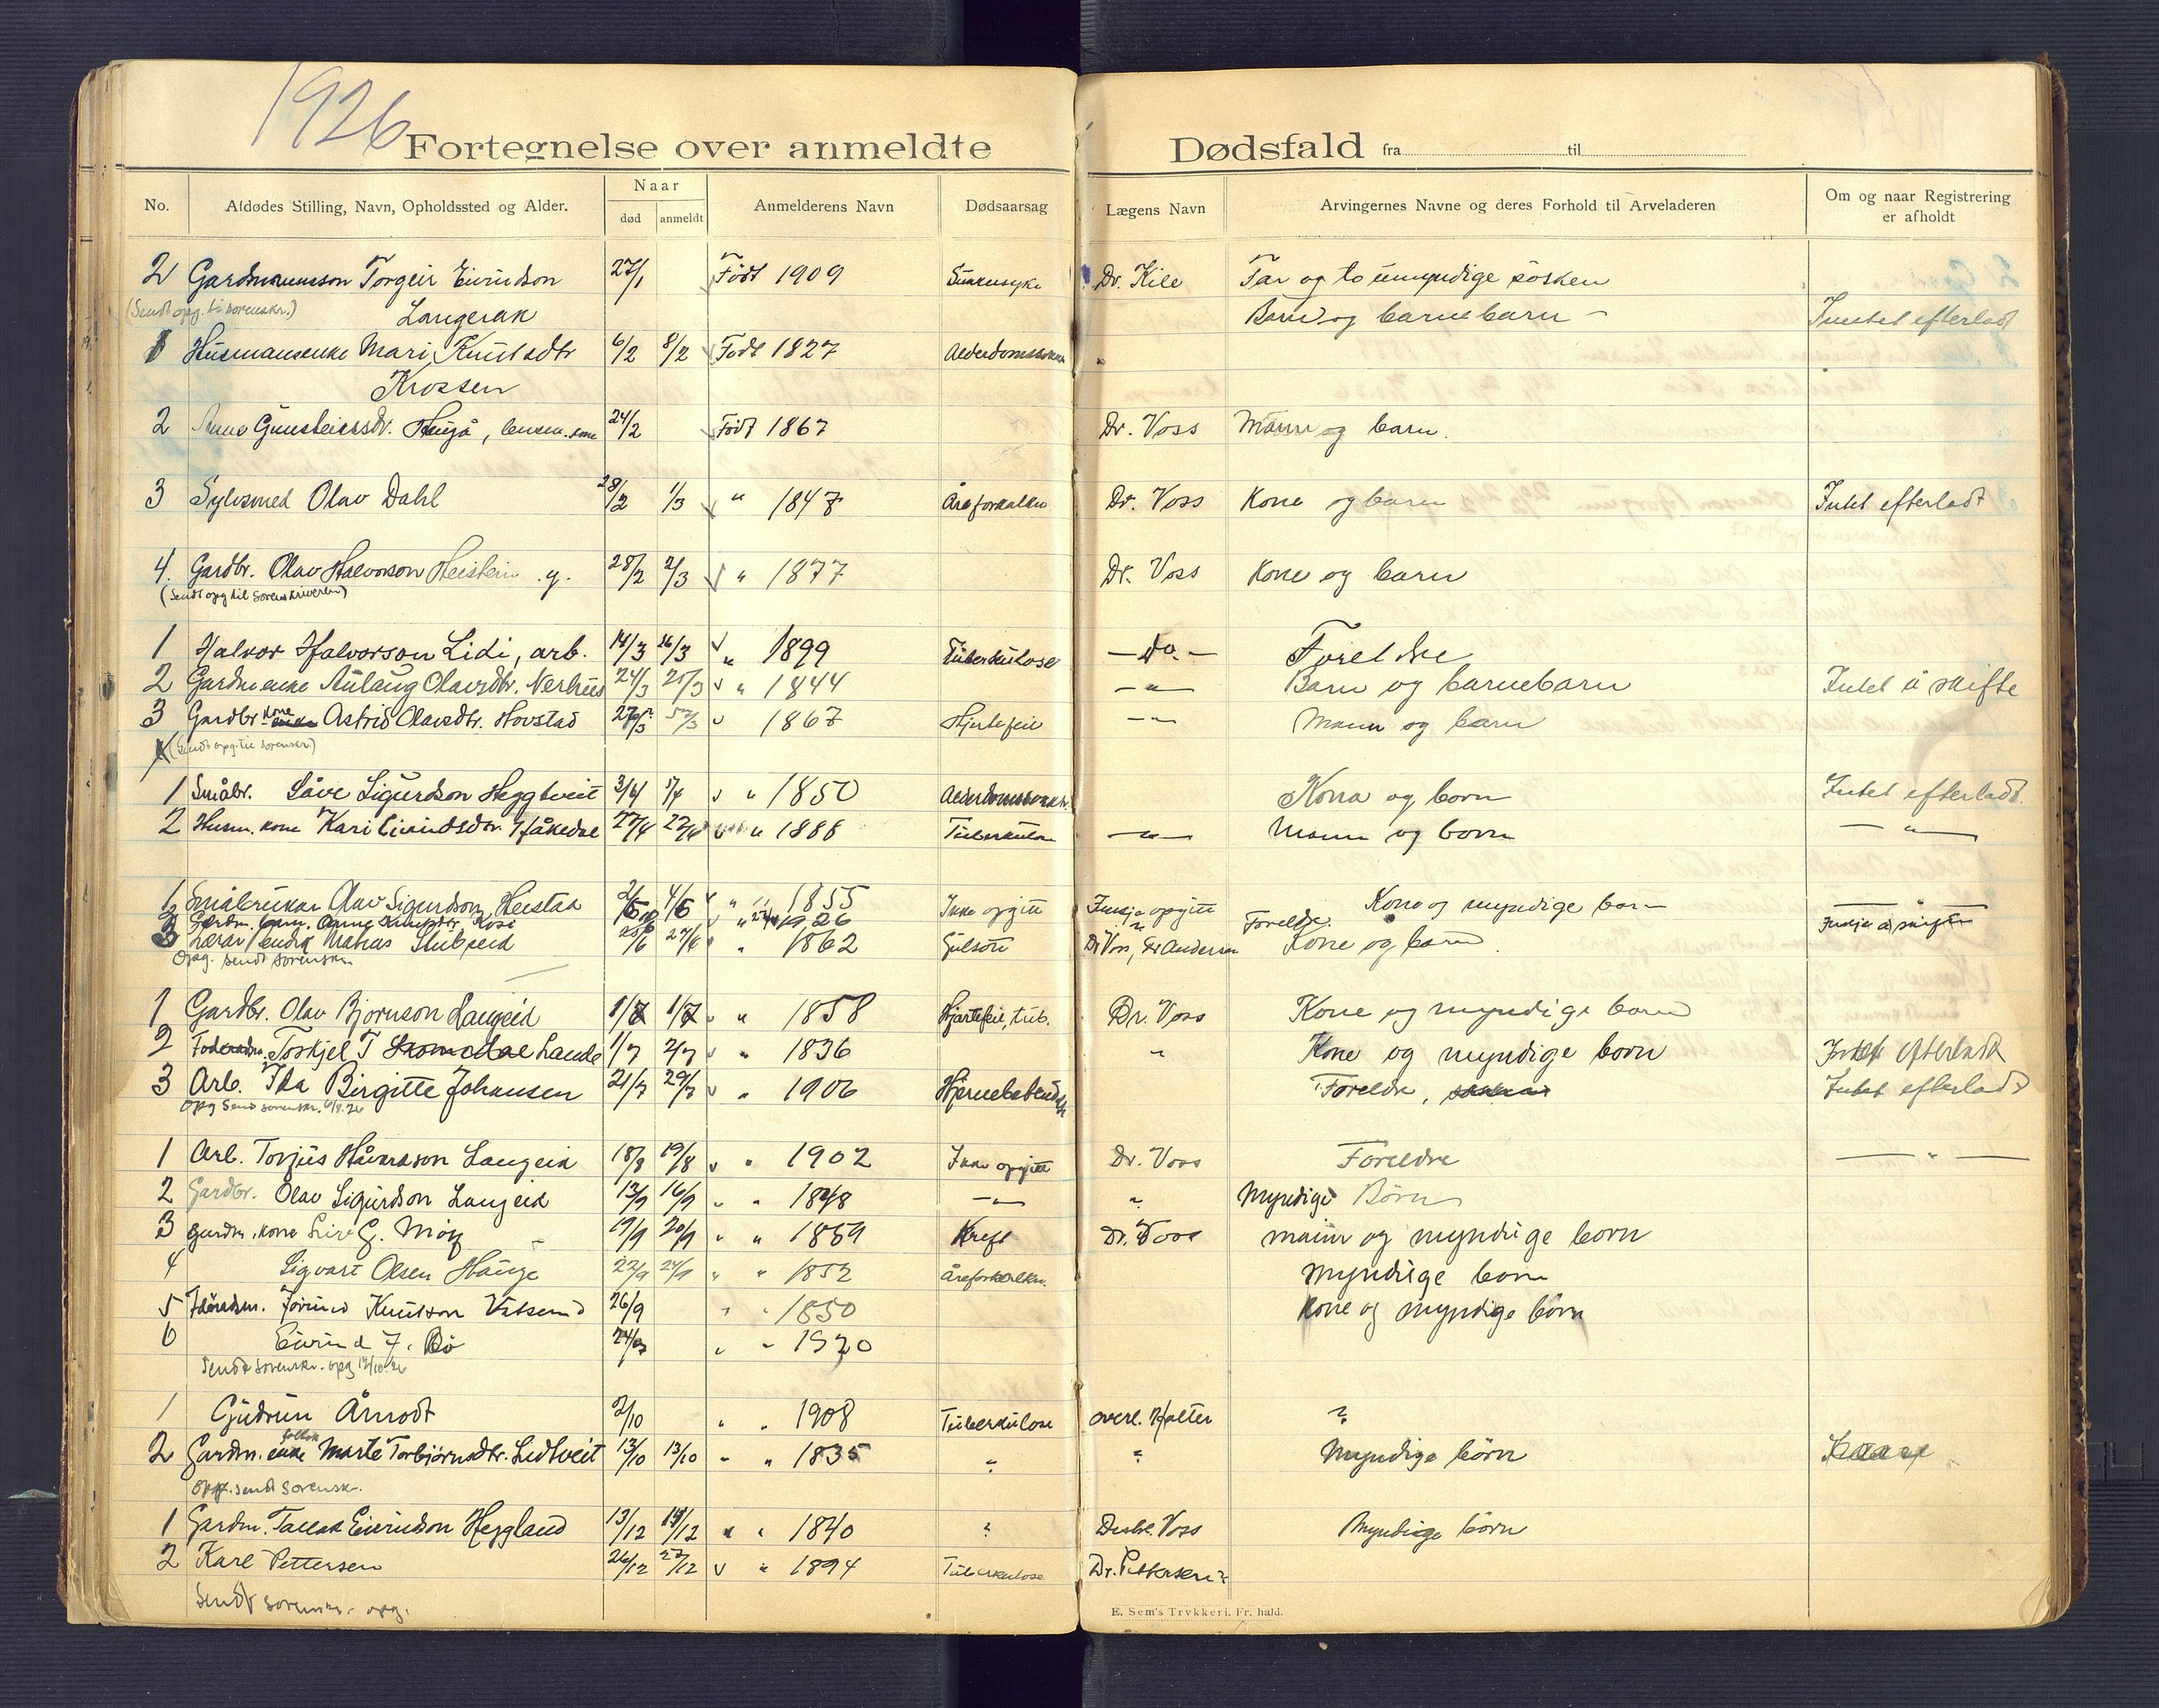 1926
Fortegnelse over anmeldte Dødsfald fra til
No. Afdødes Stilling, Navn, Opholdssted og Alder. Naar død anmeldt Anmelderens Navn Dødsaarsag Lægens Navn Arvingernes Navne og deres Forhold til Arveladeren Om og naar Registrering er afholdt
2 Gardmannsson Torgeir Eivindson 27/1 Født 1909 Dr. Kile Far og to umyndige søsken
(Sendt opg. til sorenskr.) Langerak Barn og barnebarn - Inntet efterladt
1 Husmansenke Mari Knutsdtr 6/2 8/2 Født 1827 "
Krossen
2 Gunsteinsdr. 24/2 Født 1867 Dr. Voss Mann og barn.
3 Sylvsmed Olav Dahl 28/2 1/3 " 1847 Åreforkalkn Dr. Voss Kone og barn Intet efterladt
4. Gardbr. Olav Halvorson Heistein .g. 28/2 2/3 " 1877 Dr. Voss Kone og barn
(Sendt opg til Sorenskriveren)
1 Halvor Halvorson Lidi, arb. 14/3 16/3 " 1899 Tuberkulose - Do. - Foreldre
2 Gardm enke Aulaug Olavsdtr. Nerhus 24/3 25/3 " 1844 - " - Barn og barnebarn Intet å skifte
3 Gardbr. kone Astrid Olavsdtr. Hovstad " 1867 Hjertefeil - " - Mann og barn
(Sendt opg. til sorenskr.)
1 Småbr. Såve Sigurdson Heggtveit 3/4 " 1850 Kona og born Intet efterladt.
2 Husm. kone Kari Eivindsdtr. 27/4 " 1888 Tuberkulose - " - Mann og born - " -
1 Småbruker Olav Sigurdson Heistad 2/5 4/5 " 1855 Ikke opgitt Inkje opgitt Kone og myndige barn
2 Gardm. barn. " 1926 " Foreldre Inkje å skifte
3 Lærar Matias Stubseid " 1862 Gulsott Dr Voss, Dr Andersen Kone og barn.
Opg. sendt sorenskr.
1 Gardbr. Olav Bjornson Langeid 1/7 1/7 " 1858 Hjartefeil, tub. Dr. Voss Kone og myndige barn
2 Torkjel T Lande 1/7 2/7 " 1836 " Kone og myndige born Intet efterladt
3 Arb. Ida Birgitte Johansen 21/7 29/7 " 1906 Foreldre, Intet efterladt
Opg Send sorenskr. 6/8.26
1 Arb. Torjus Håvardson Langeid 18/8 19/8 " 1902 Ikke opgitt Dr. Voss Foreldre - " -
2 Gardbr. Olav Sigurdson Langeid 13/9 16/9 " 1848 - " - " Myndige Børn
3 Gardm. kona Siri G. Moy 19/9 20/9 " 1859 Kreft Dr. Voss mann og myndige born
4 Sigvart Olsen Hauge 22/9 24/9 " 1852 Åreforkalkn. Myndige born
5 Jørund Knutson 26/9 " 1850 Kone og myndige børn
6 Eivind J. Bø " 1920
Sendt sorenskr. opg 12/10.26
1 Gudrun Åmodt 2/10 " 1908 Tuberkulose overl. Holter "
2 Gardm. enke Marte Torbjørnsdtr. Lidtveit 13/10 13/10 " 1835 " " Myndige børn
Opg. sendt sorensk.
1 Gardm. Tallak Eivindson Heggland 13/12 14/12 " 1840 " Distr. Voss Myndige børn
2 Karl Pettersen 26/12 27/12 " 1894 Tuberkulose Dr. Pettersen
Sendt sorenskr. opg.
E. Sem's Trykkeri. Fr. hald.